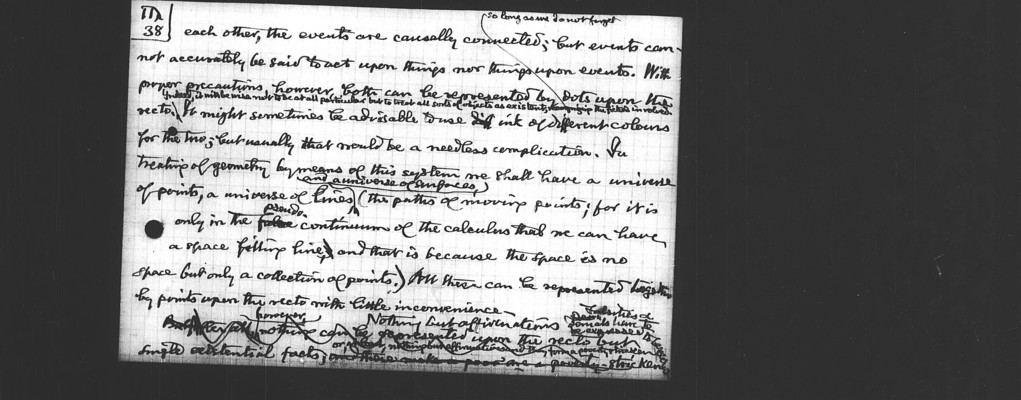 38
so long as we do not forget
each other, the events are causally connected; but events can-
not accurately be said to act upon things nor things upon events. With
proper precautions, however, both can be represented by dots upon the
Indeed, it will be as well not to be at all particular but to treat all sorts of objects as existent,
recto. It might sometimes be advisable to use ink of different colours
for the two; but usually that would be a needless complication. In
treating of geometry by means of this system we shall have a universe
and a universe of surfaces
of points, a universe of lines (the paths of moving points; for it is
pseudo-
only in the false continuum of the calculus that we can have
a space filling line, and that is because the space is no
space but only a collection of points.) All these can be represented together
by points upon the recto with little inconvenience.
however, Nothing but affirmations
nothing can be represented upon the recto but
nothing but affirmations and they form a
single existential facts; and these